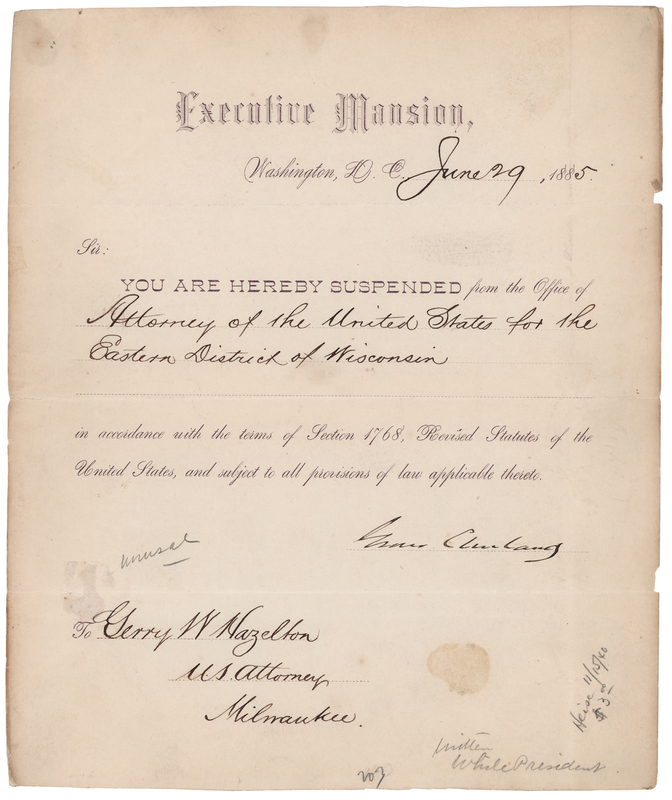 Executive Mansion,
Washington, D. C. June 29, 1885.
Sir:
YOU ARE HEREBY SUSPENDED from the Office of
Attorney of the United States for the
Eastern District of Wisconsin
in accordance with the terms of Section 1768, Revised Statutes of the
United States, and subject to all provisions of law applicable thereto.
Grover Cleveland
unusal
To Gerry W Hazelton
US. Attorney
Milwaukee.
Heise 11/15/40
$3
written
While President
203